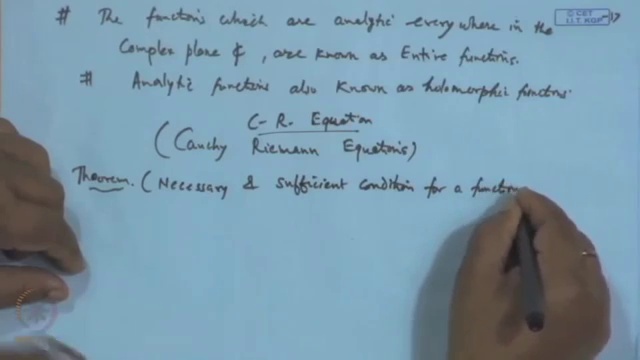 # The functions which are analytic everywhere in the
Complex plane ₵, are known as Entire functions.
# Analytic functions also known as holomorphic functions.
C-R. Equation
(Cauchy Riemann Equations)
Theorem. (Necessary & sufficient condition for a function
© CET
I.I.T. KGP